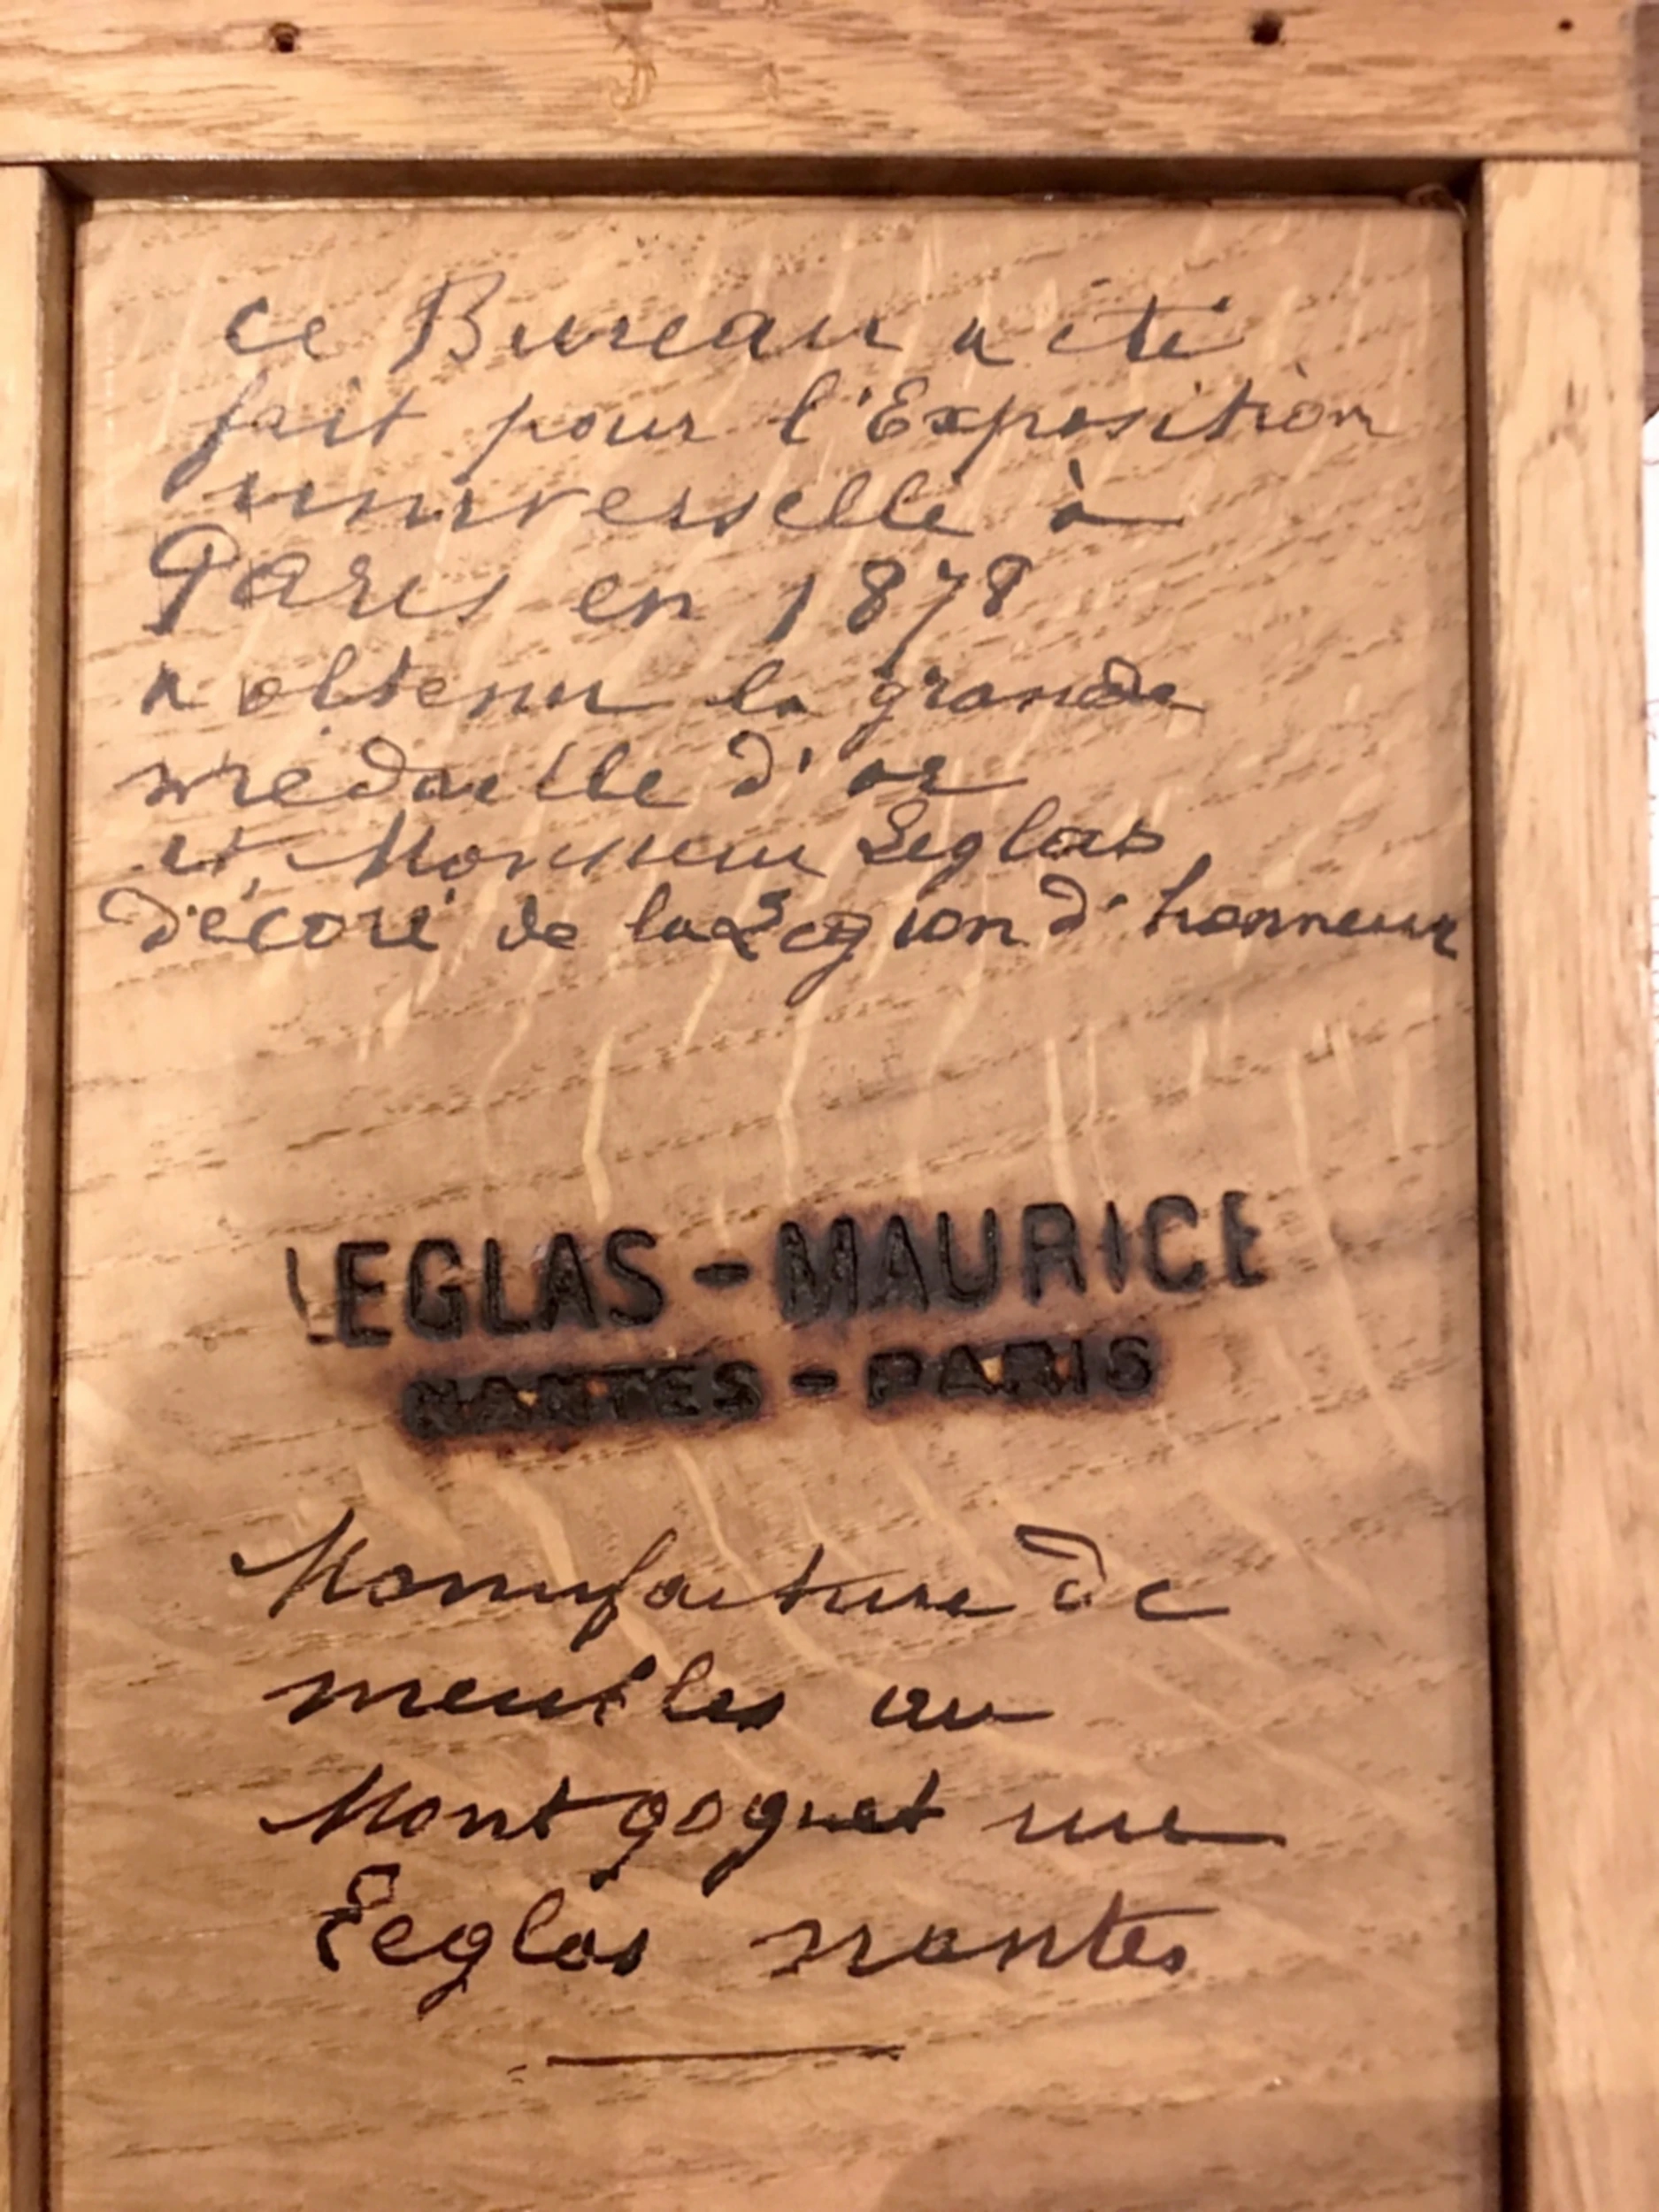 ce Bureau a été
fait pour l'Exposition
universelle à
Paris en 1878
a obtenu la grande
medaille d'or
et Monsieur Leglas
décoré de la Legion d'honneur
LEGLAS - MAURICE
NANTES - PARIS
Manufacture de
meubles au
Mont goguet rue
Leglas nantes